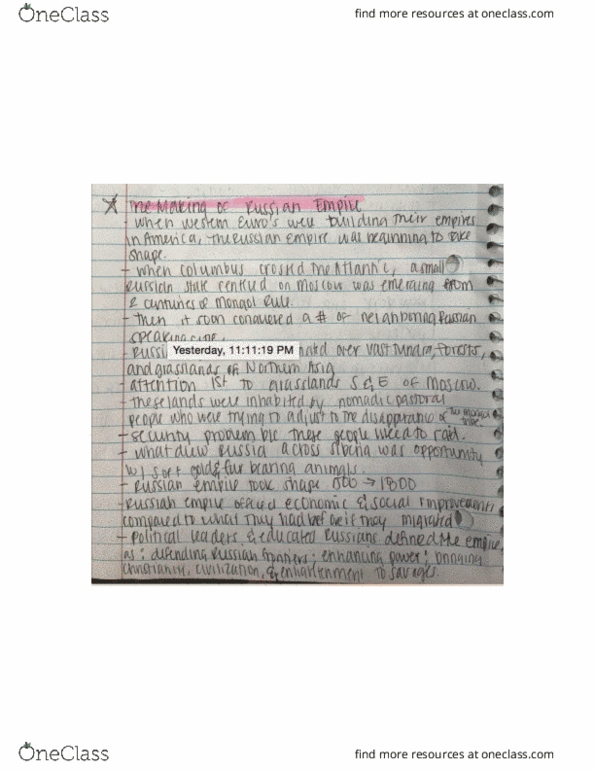 OneClass
find more resources at oneclass.com
The Making of Russian Empire
- When western Euro's were building their empires
in America, the Russian empire was beginning to take
shape.
- When columbus crossed the Atlantic, a small
Russian state centred on Moscow was emerging from
2 centuries of Mongol Rule.
- Then it soon conquered a # of neighboring Russian
speaking
- Russi
Yesterday, 11:11:19 PM
over vast tundra, forests,
and grasslands of Northern Asia
- attention 1st to grasslands S & E of Moscow.
- These lands were inhabited by nomadic pastoral
people who were trying to adjust to the disappearance of the Mongol
- security problem b/c these people used to raid.
- What drew Russia across Siberia was opportunity
w/ soft gold & fur bearing animals.
- Russian empire took shape 1500 → 1800
- Russian empire offered economic & social improvements
compared to what they had before if they migrated
- Political leaders & educated Russians defined the empire
as: defending Russian frontiers; enhancing power; bringing
Christianity, civilization, & enlightenment to savages.
OneClass
find more resources at oneclass.com